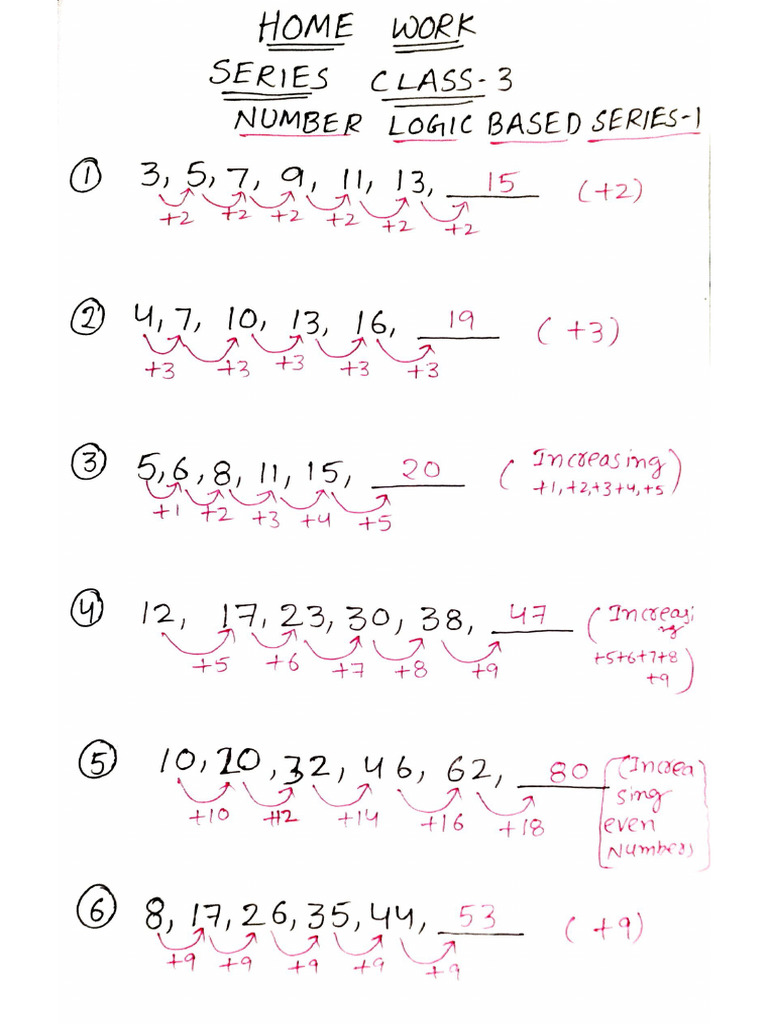 HOME WORK
SERIES CLASS-3
NUMBER LOGIC BASED SERIES-1
① 3, 5, 7, 9, 11, 13, 15 (+2)
+2 +2 +2 +2 +2 +2
② 4, 7, 10, 13, 16, 19 (+3)
+3 +3 +3 +3 +3
③ 5, 6, 8, 11, 15, 20 (Increasing
+1, +2, +3 +4, +5)
+1 +2 +3 +4 +5
④ 12, 17, 23, 30, 38, 47 (Increasi
ng
+5 +6 +7 +8 +9
+5+6+7+8
+9)
⑤ 10, 20, 32, 46, 62, 80 (Increa
sing
+10 +12 +14 +16 +18
even
Numbers)
⑥ 8, 17, 26, 35, 44, 53 (+9)
+9 +9 +9 +9 +9